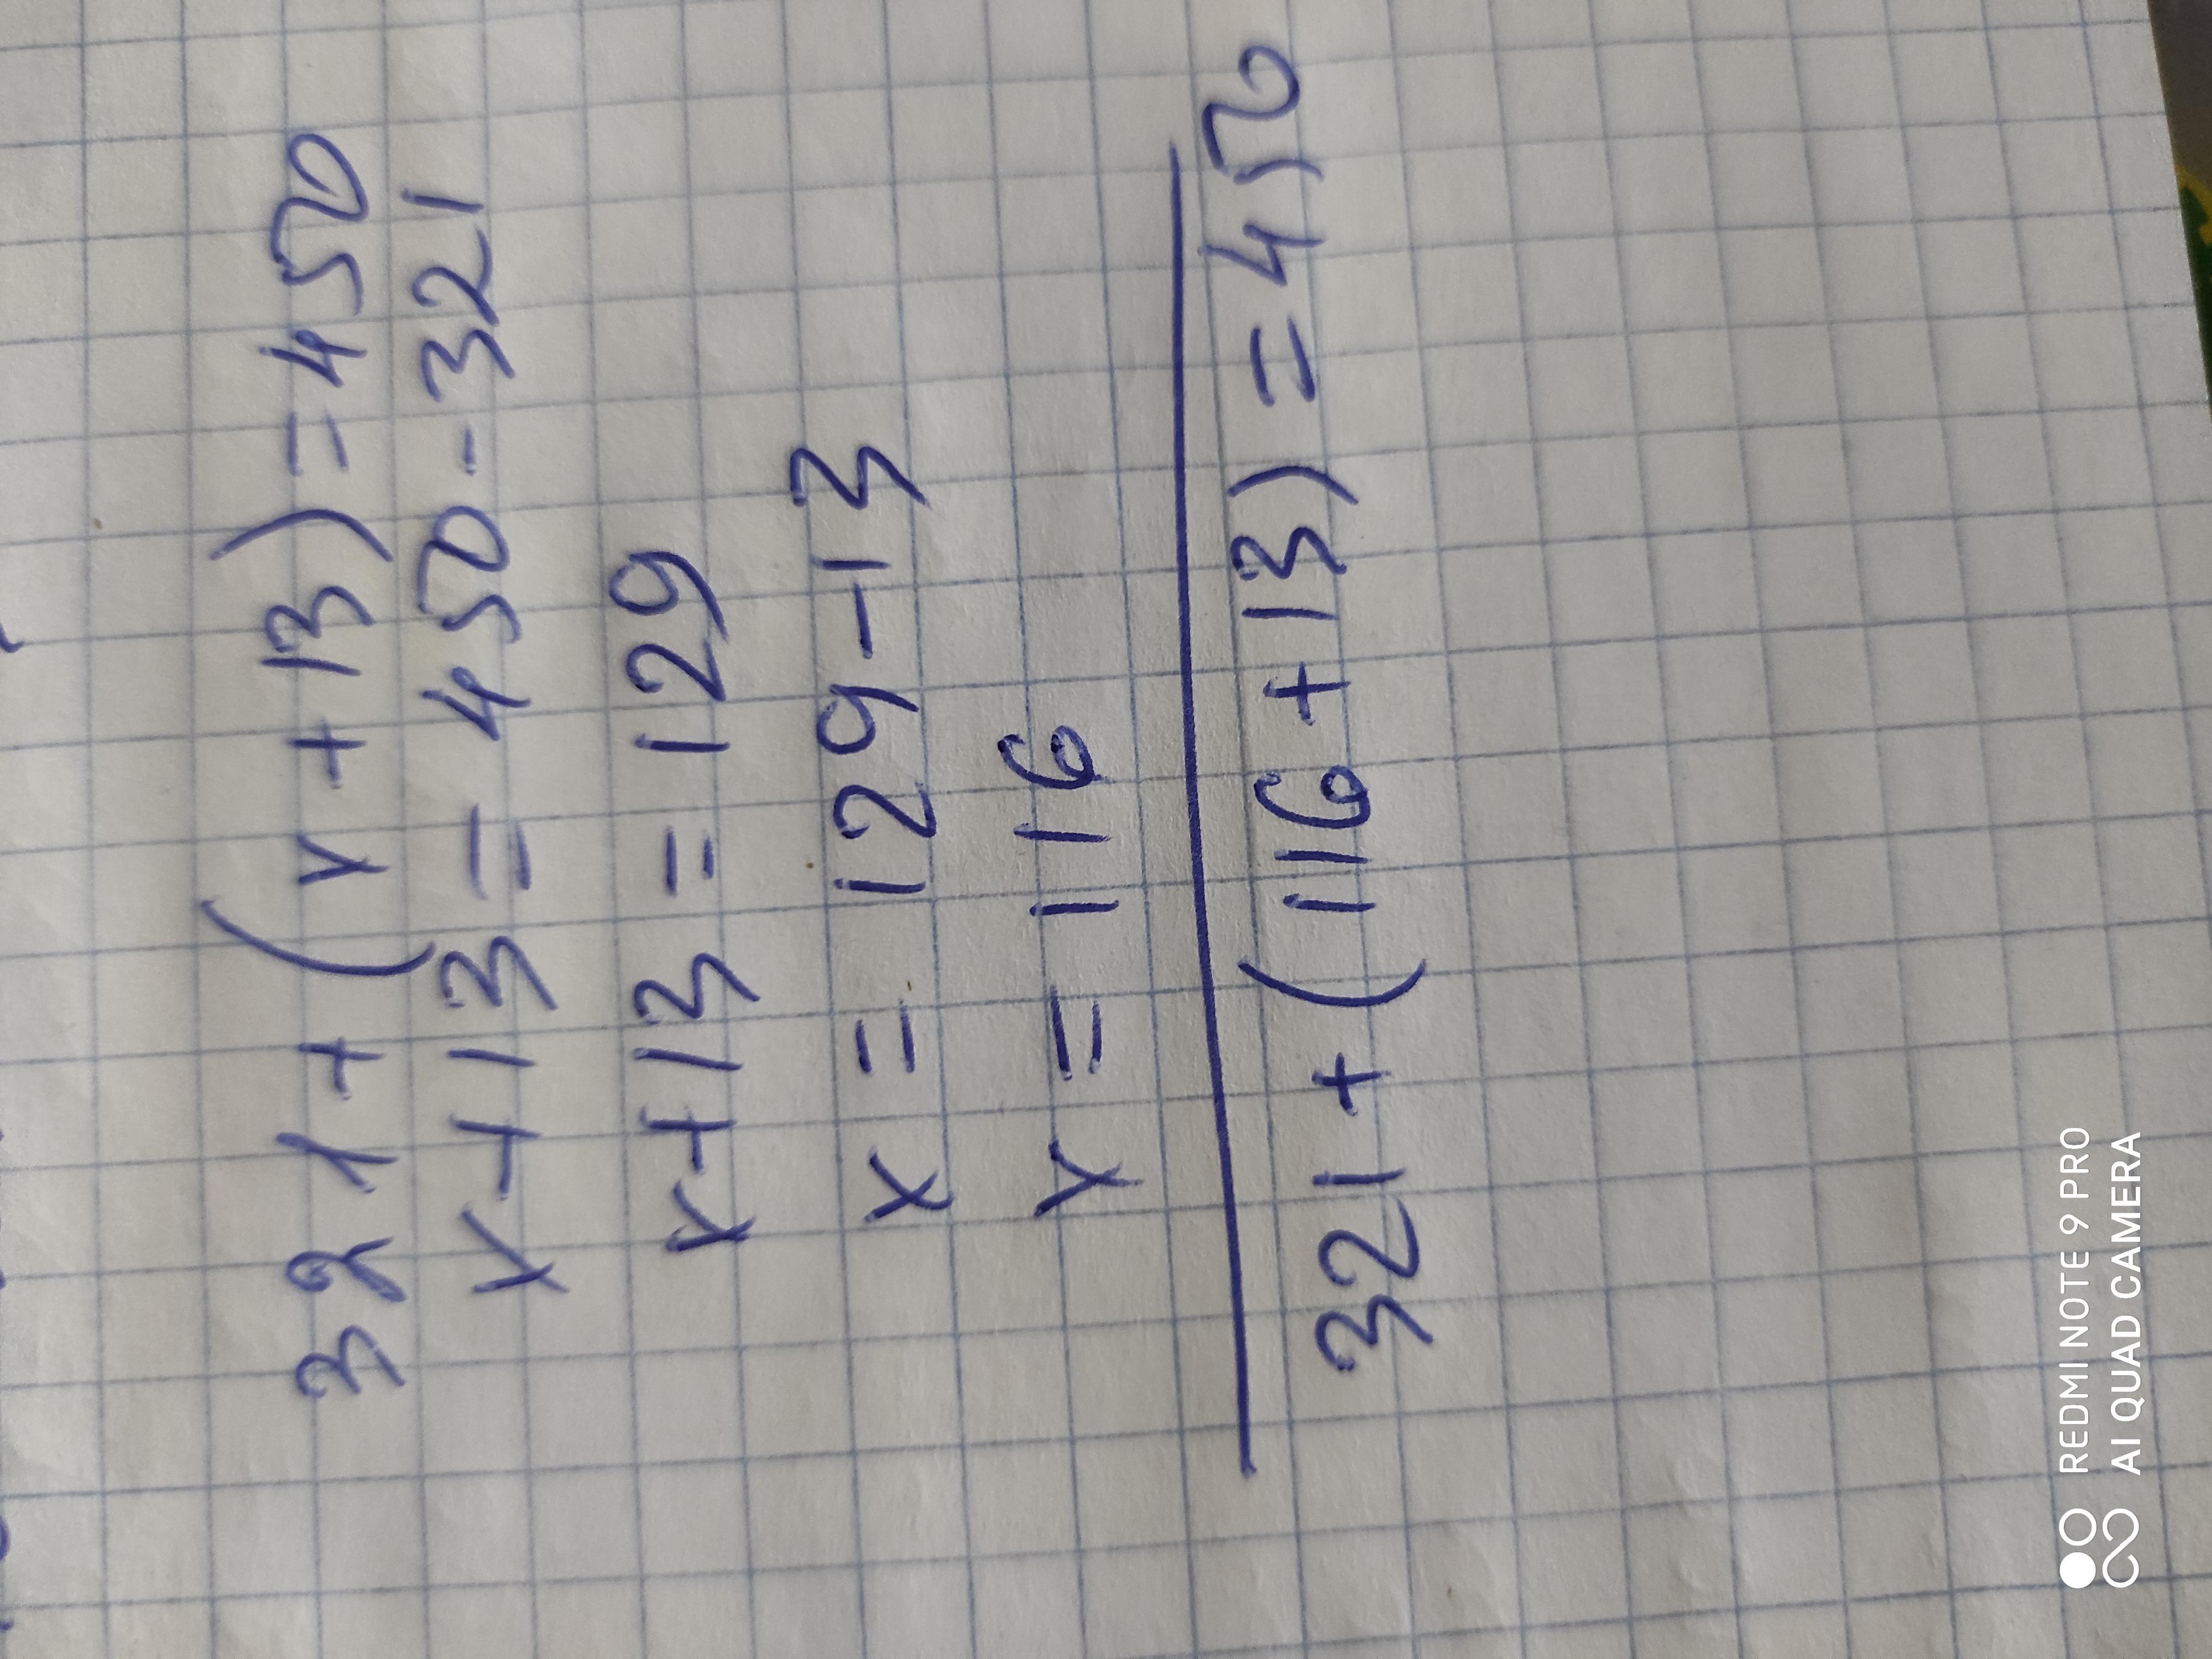 321+(x+13)=450
x+13=450-321
x+13=129
x=129-13
x=116
321+(116+13)=450
REDMI NOTE 9 PRO
AI QUAD CAMERA